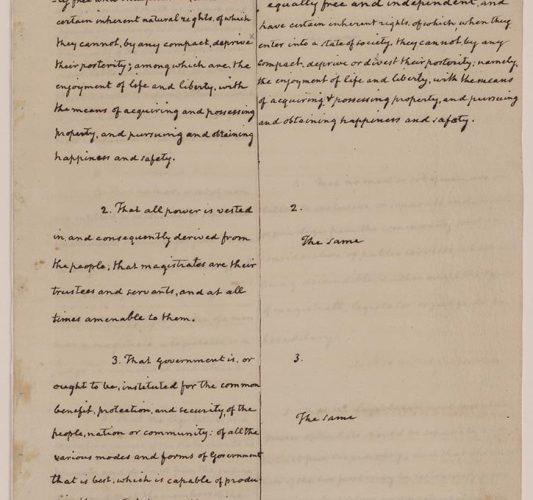 certain inherent natural rights, of which
they cannot, by any compact, deprive
their posterity; among which are, the
enjoyment of life and liberty, with
the means of acquiring and possessing
property, and pursuing and obtaining
happiness and safety.
2. That all power is vested
in, and consequently derived from
the people; that magistrates are their
trustees and servants, and at all
times amenable to them.
3. That Government is, or
ought to be, instituted for the common
benefit, protection, and security, of the
people, nation or community: of all the
various modes and forms of Government
that is best, which is capable of produ-
equally free and independent, and
have certain inherent rights, of which, when they
enter into a state of society, they cannot, by any
compact, deprive or divest their posterity; namely,
the enjoyment of life and liberty, with the means
of acquiring & possessing property, and pursuing
and obtaining happiness and safety.
2.
The same
3.
The same